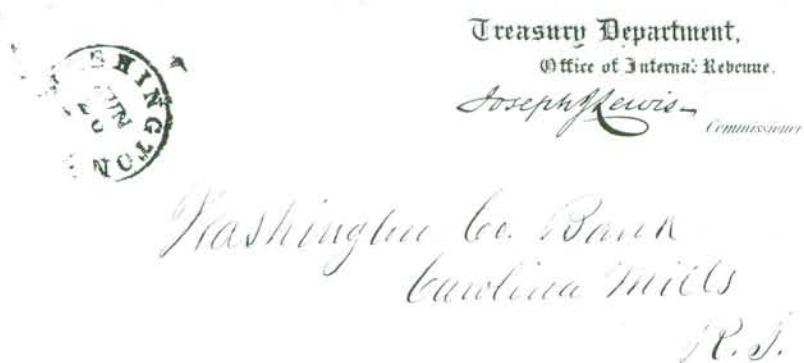 WASHINGTON
JUN
Treasury Department,
Office of Internal Revenue.
Joseph J Lewis
Commissioner
Washington Co. Bank
Carolina Mills
R.I.